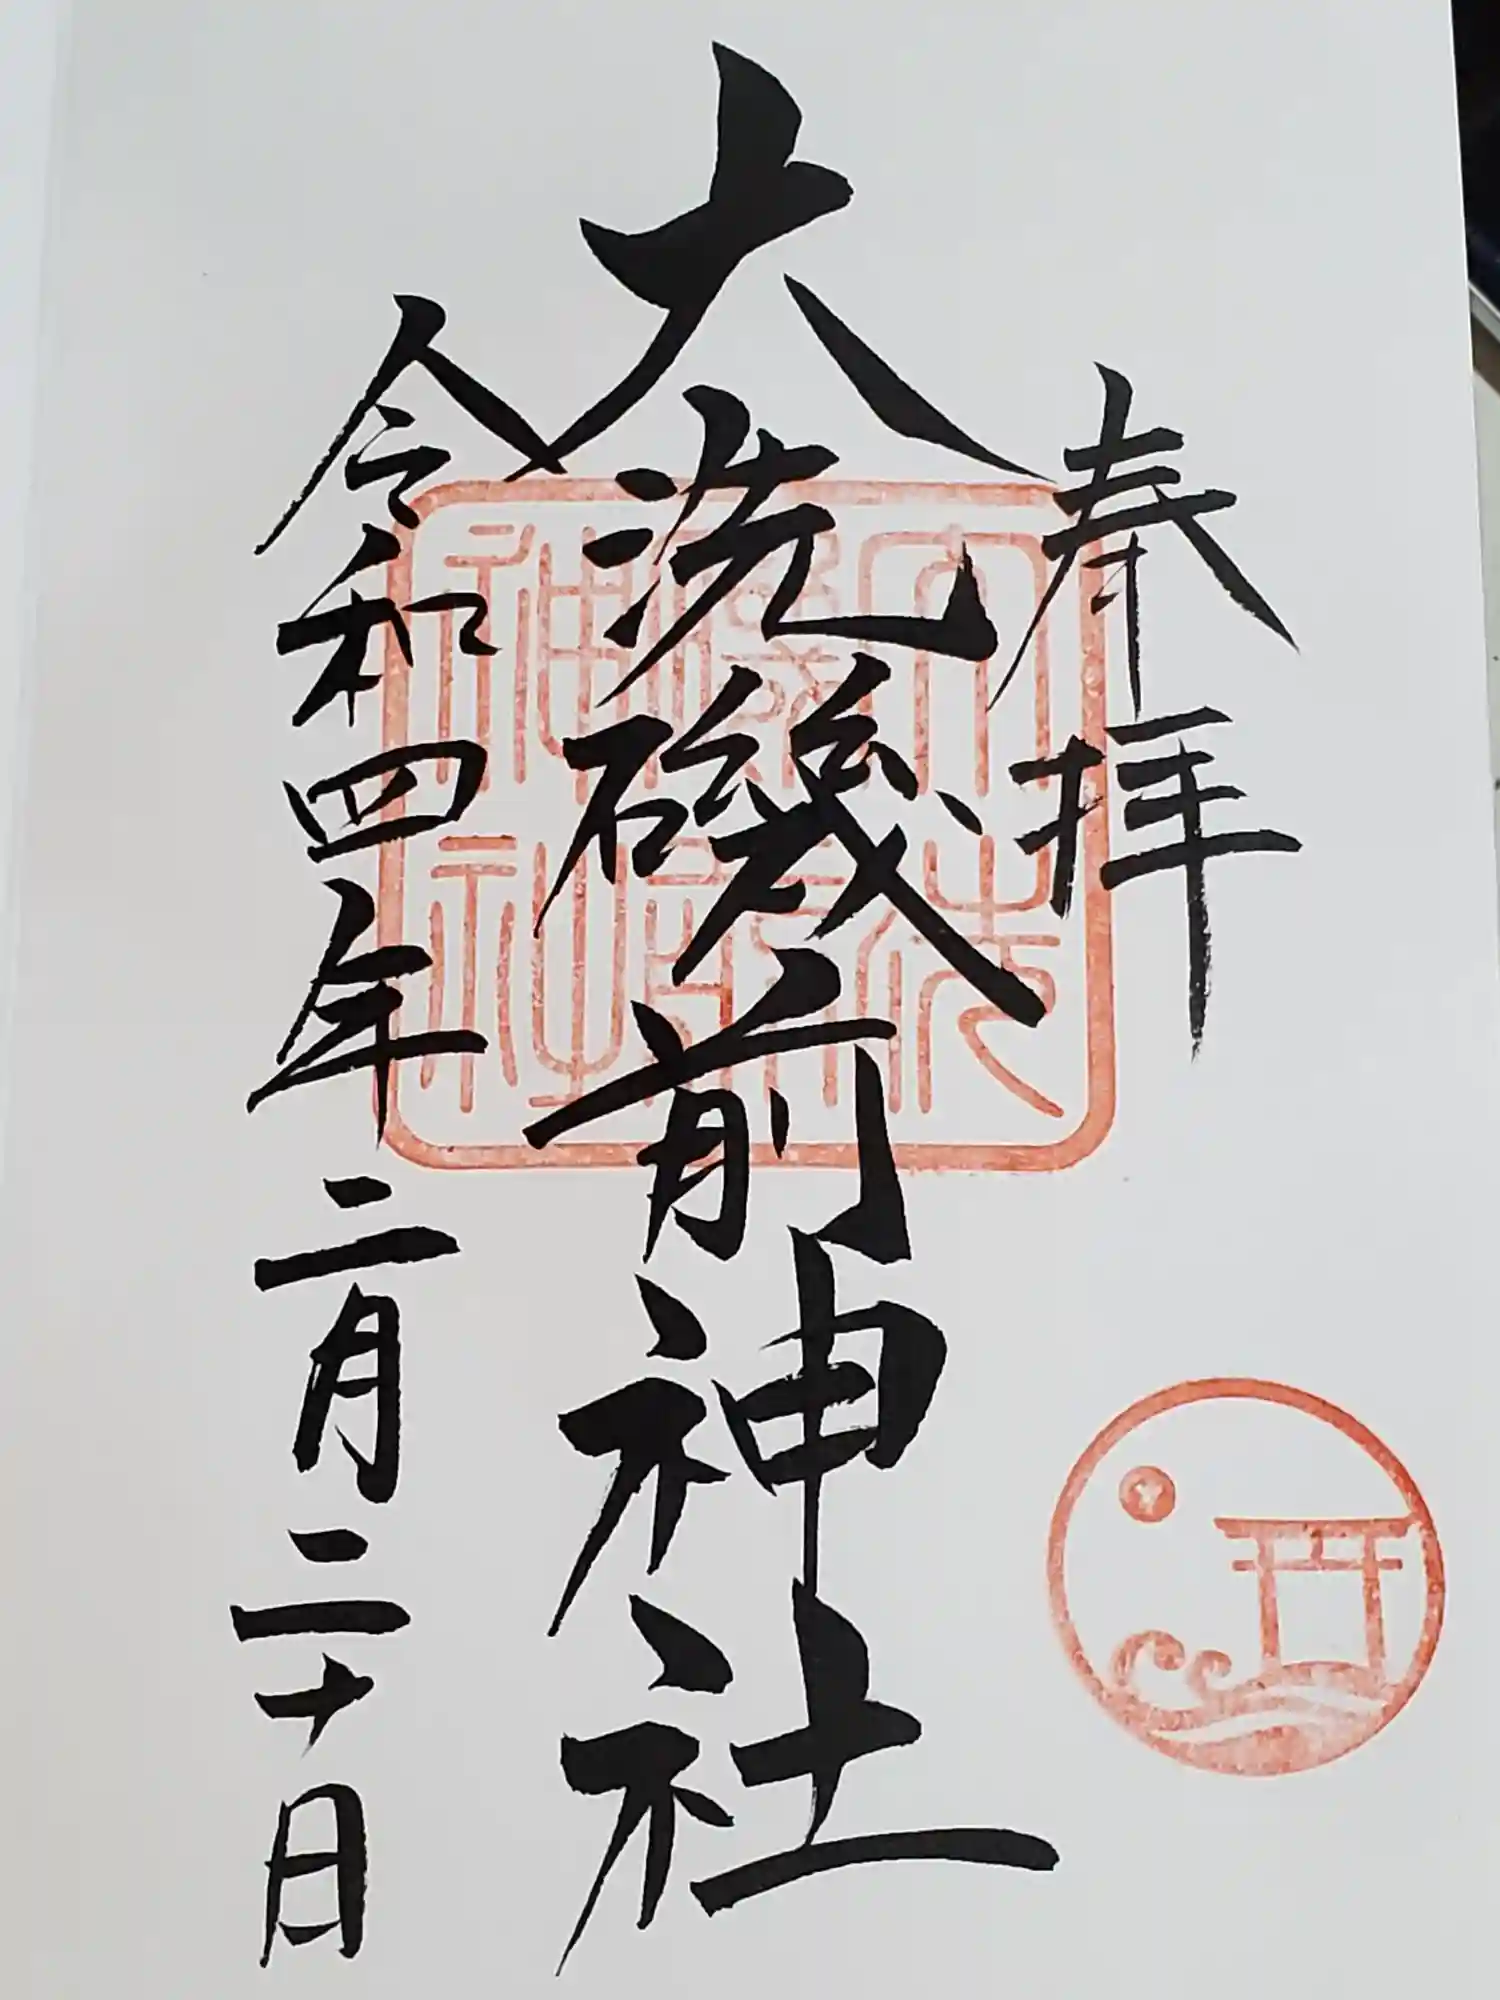 奉拝
大洗磯前神社
令和四年二月二十日
大洗磯前神社